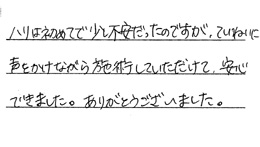 ハリは初めてで少し不安だったのですが、ていねいに
声をかけながら施術していただけて、安心
できました。ありがとうございました。